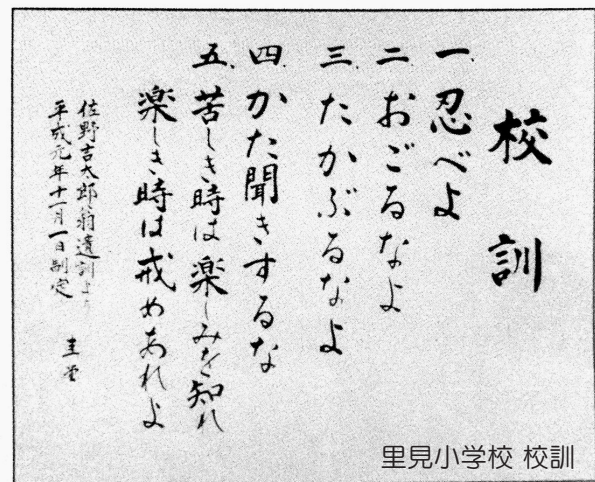 校訓
一、忍べよ
二、おごるなよ
三、たかぶるなよ
四、かた聞きするな
五、苦しき時は楽しみを知れ
楽しき時は戒めあれよ
佐野吉太郎翁遺訓より
平成元年十一月一日制定
里見小学校 校訓